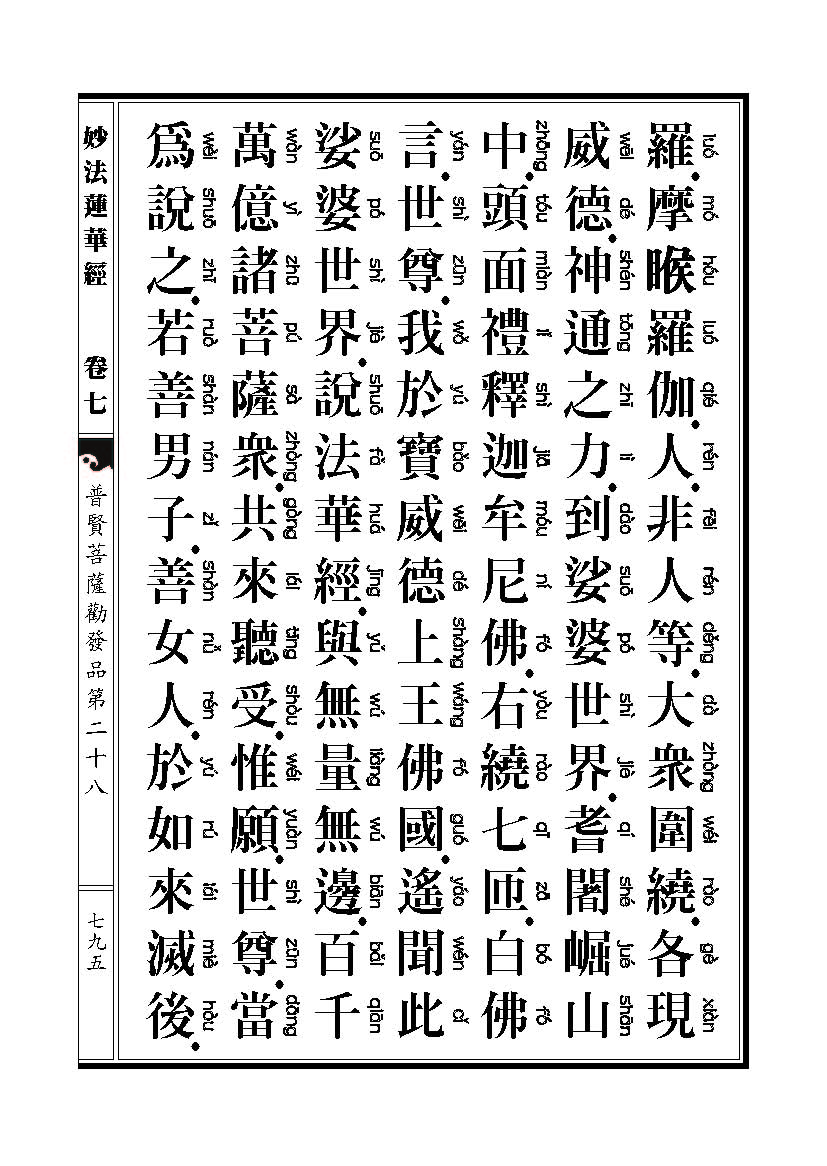 羅摩睺羅伽.人非人等.大衆圍繞.各現
luó mó hóu luó qié rén fēi rén děng dà zhòng wéi rào gè xiàn
威德.神通之力.到娑婆世界.耆闍崛山
wēi dé shén tōng zhī lì dào suō pó shì jiè qí shé jué shān
中.頭面禮釋迦牟尼佛.右繞七匝.白佛
zhōng tóu miàn lǐ shì jiā móu ní fó yòu rào qī zā bó fó
言.世尊.我於寶威德上王佛國.遙聞此
yán shì zūn wǒ yú bǎo wēi dé shàng wáng fó guó yáo wén cǐ
娑婆世界.說法華經.與無量無邊.百千
suō pó shì jiè shuō fǎ huá jīng yǔ wú liàng wú biān bǎi qiān
萬億諸菩薩衆.共來聽受.惟願.世尊.當
wàn yì zhū pú sà zhòng gòng lái tīng shòu wéi yuàn shì zūn dāng
爲說之.若善男子.善女人.於如來滅後.
wèi shuō zhī ruò shàn nán zǐ shàn nǚ rén yú rú lái miè hòu
妙法蓮華經 卷七
普賢菩薩勸發品第二十八
七九五